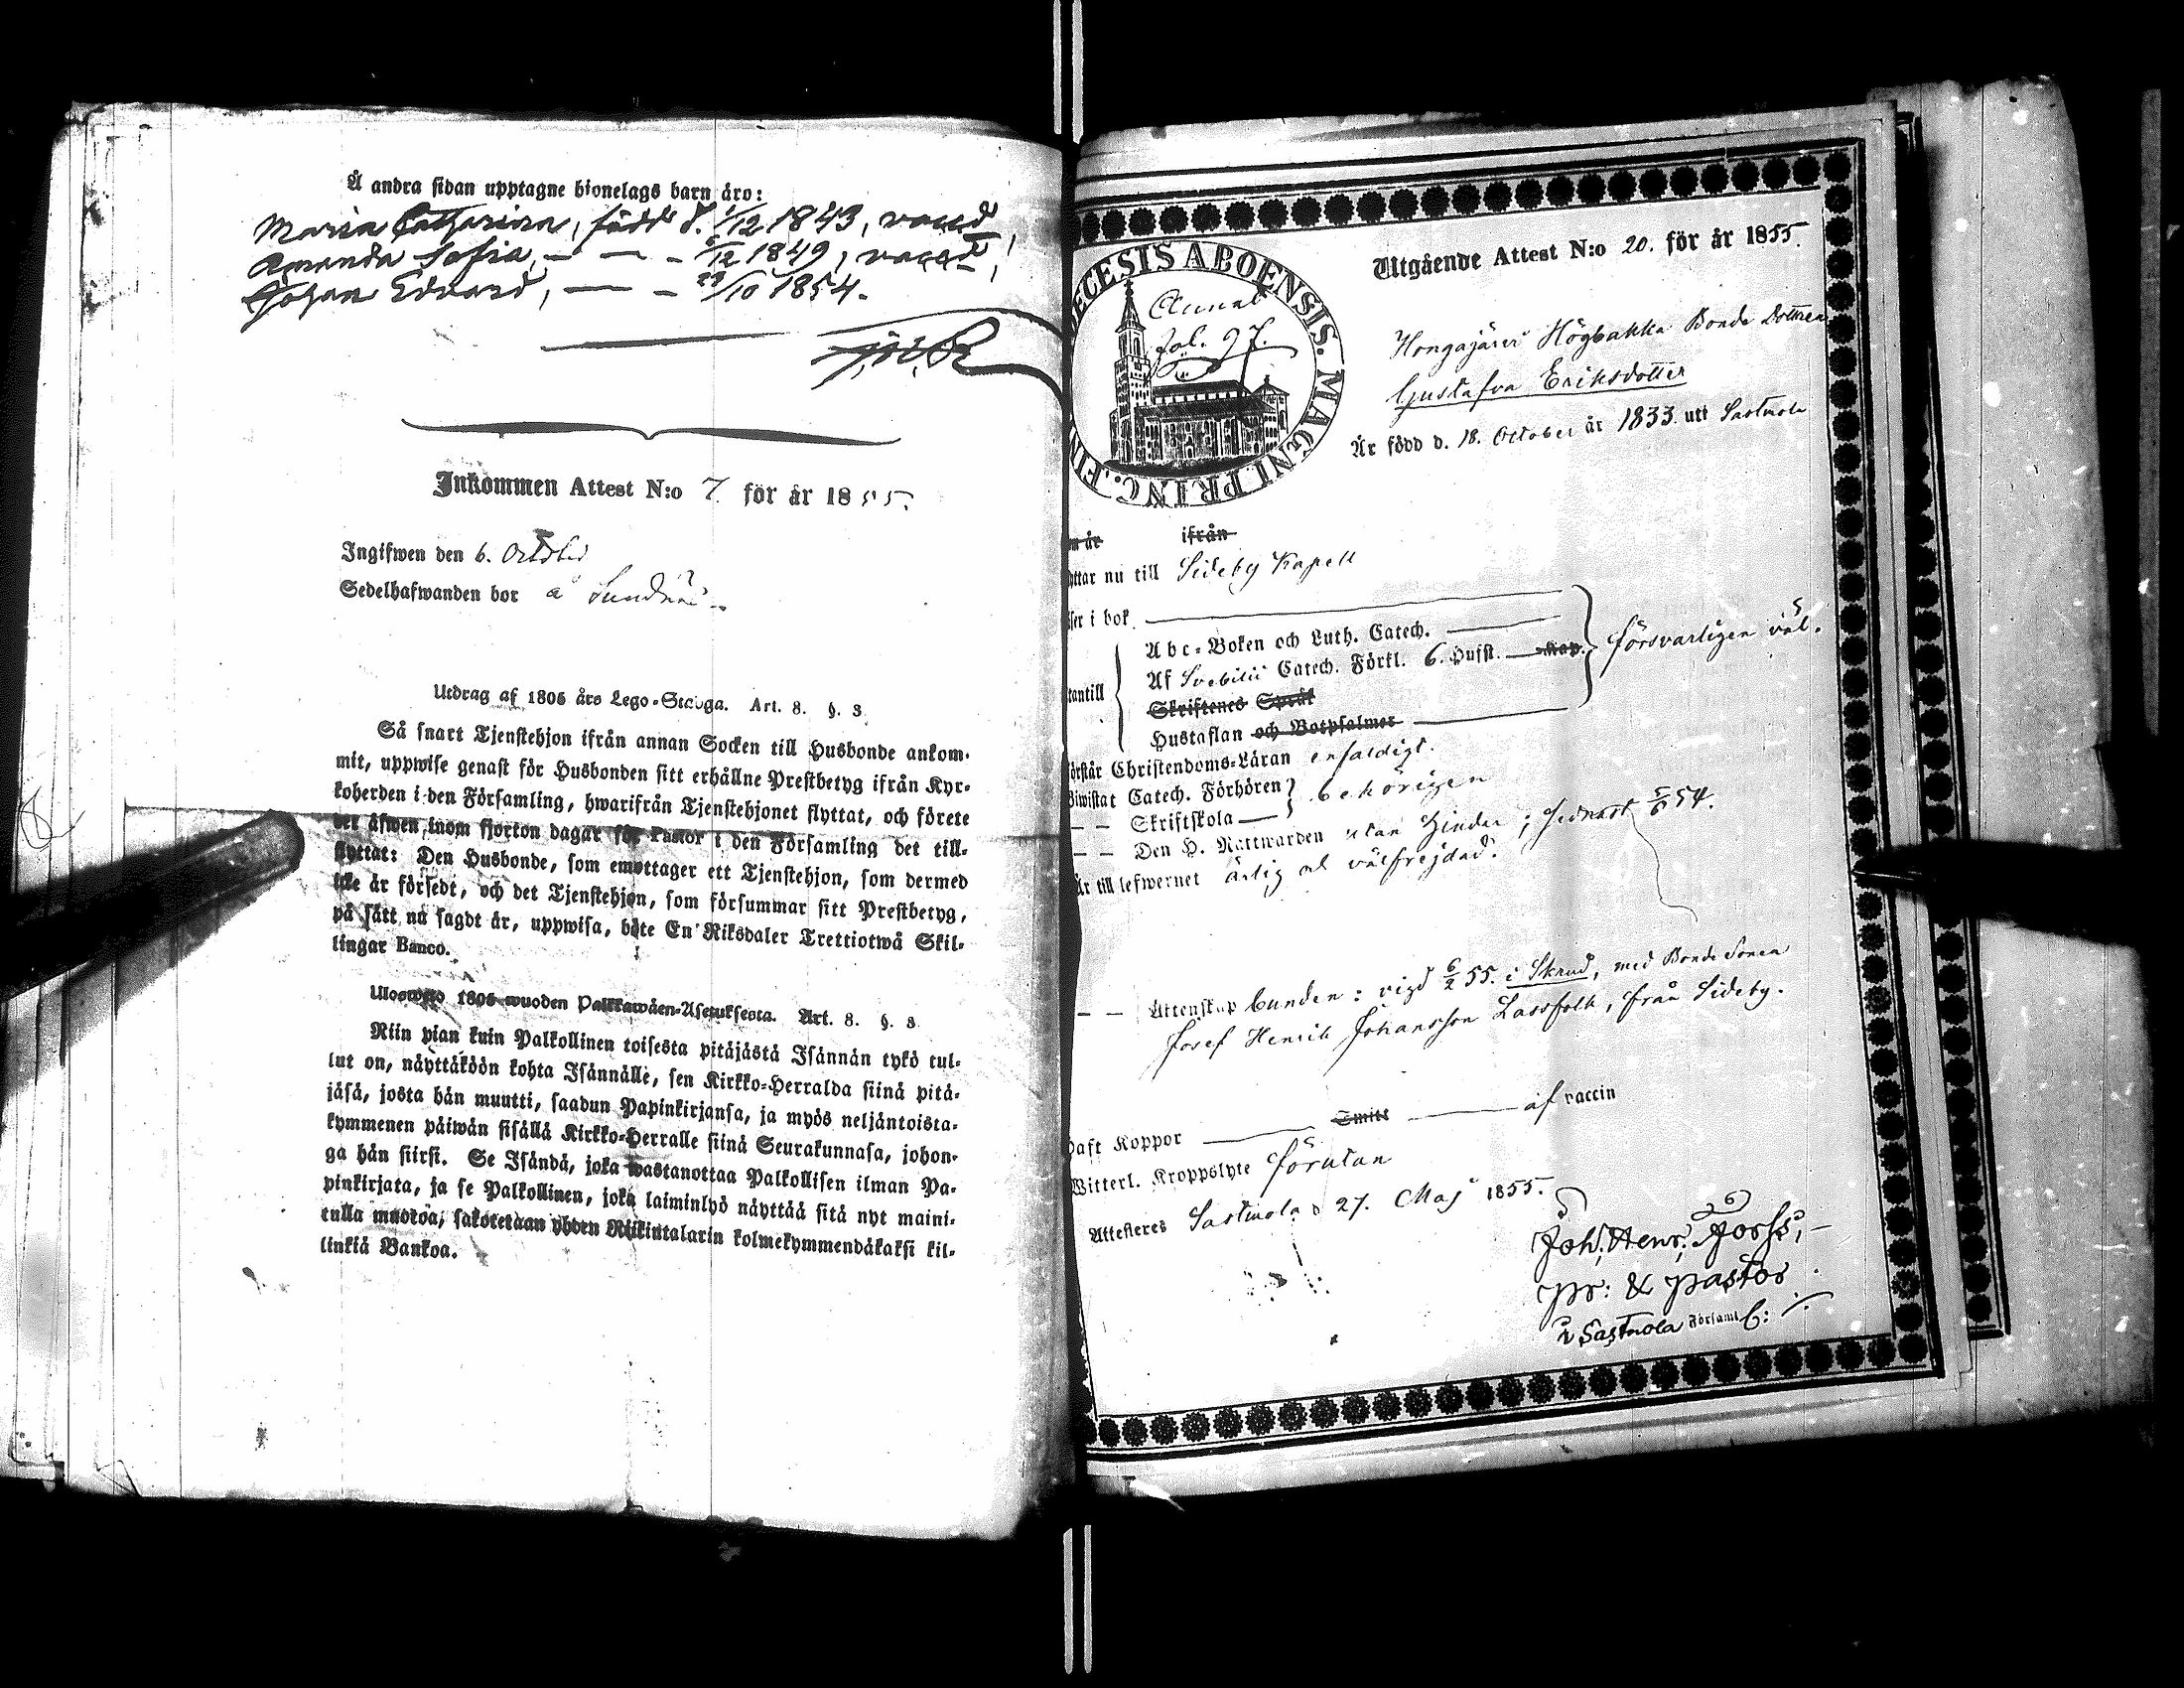 Å andra sidan upptagne hionelags barn äro:
Maria Catharina, född d. 1/12 1843, vacc̄d,
Amanda Sofia, — — - 6/12 1849, vaccd,
Johan Edvard, — - 23/10 1854.
Inkommen Attest N:o 7. för år 1855.
Ingifwen den 6. October
Sedelhafwanden bor å
Utdrag af 1805 års Lego-Stadga. Art. 8. §. 3.
Så snart Tjenstehjon ifrån annan Socken till Husbonde ankom-
mit, uppwise genast för Husbonden sitt erhållne Prestbetyg ifrån Kyr-
koherden i den Församling, hwarifrån Tjenstehjonet flyttat, och förete
det äfwen inom fjorton dagar för Pastor i den Församling det till-
flyttat: Den Husbonde, som emottager ett Tjenstehjon, som dermed
icke är försedt, och det Tjenstehjon, som försummar sitt Prestbetyg,
på sätt nu sagdt är, uppwisa, böte En Riksdaler Trettiotwå Skil-
lingar Banco.
Uloswetto 1805 wuoden Palkkawäen-Asetuksesta. Art. 8. §. 3.
Niin pian kuin Palkollinen toisesta pitäjästä Isännän tykö tul-
lut on, näyttäköön kohta Isännälle, sen Kirkko-Herralda siinä pitä-
jäsä, josta hän muutti, saadun Papinkirjansa, ja myös neljäntoista-
kymmenen päiwän sisällä Kirkko-Herralle siinä Seurakunnasa, johon-
ga hän siirsi. Se Isändä, joka wastanottaa Palkollisen ilman Pa-
pinkirjata, ja se Palkollinen, joka laiminlyö näyttää sitä nyt maini-
tulla muotoa, sakotetaan yhden Riikintalarin kolmekymmendäkaksi kil-
linkiä Bankoa.
DIECESIS ABOENSIS. MAGNI PRINC. FIN
fol. 97.
Utgående Attest N:o 20. för år 1855.
Hongajärvi Högbakka Bonde Dottren
Gustafva Eriksdotter
Är född d. 18. October år 1833 uti Sastmola
m år ifrån
yttar nu till Sideby Kapell
äser i bok
Abc-Boken och Luth. Catech.
Af Svebilii Catech. Förkl. 6. Hufst. Kap. försvarligen väl.
tantill
Skriftenes Språk
Hustaflan och Botpsalmer
örstår Christendoms-Läran enfaldigt.
Biwistat Catech. Förhören behörigen
— — Skriftskola
— — Den H. Nattwarden utan hinder; sednast 5/6 54.
Är till lefwernet ärlig och välfrejdad.
— — Äktenskap bunden: vigd 6/2 55. i Skrud, med Bonde Sonen
Josef Henrik Johansson Lassfolk, från Sideby.
Haft Koppor Smitt af vaccin
Witterl. Kroppslyte förutan
Attesteres Sastmola d 27. Maj 1855.
Joh. Henr. Forss,
pr: & pastor
i Sastmola Församl